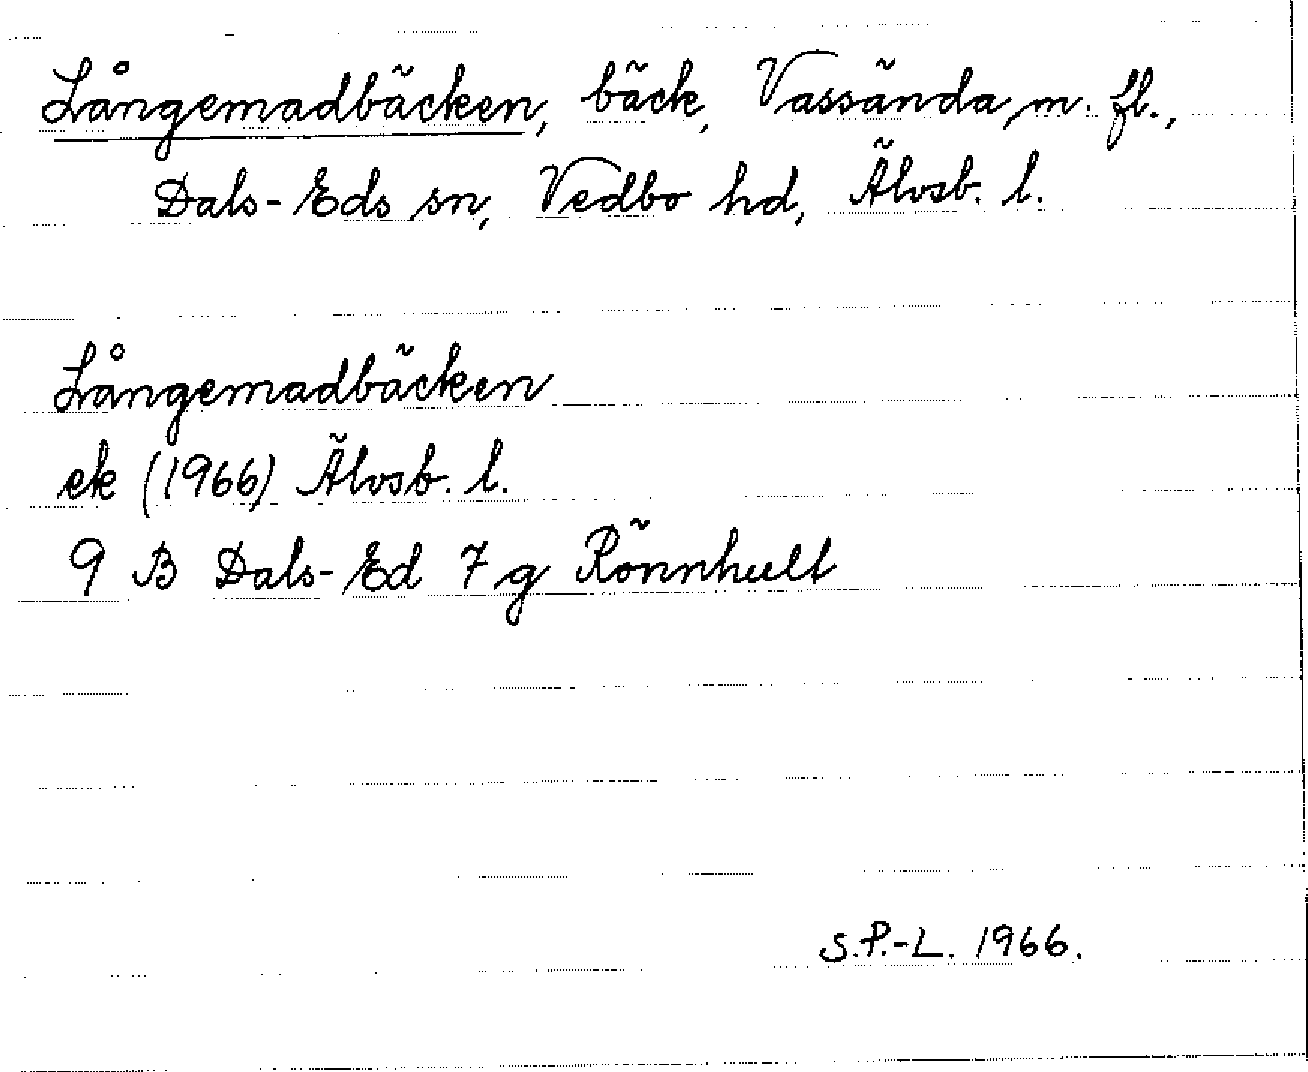 Långemadbäcken, bäck, Vassända m. fl.,
Dals-Eds sn, Vedbo hd, Älvsb. l.
Långemadbäcken
ek (1966) Älvsb. l.
9 B Dals-Ed 7 g Rönnhult
S.P.-L. 1966.